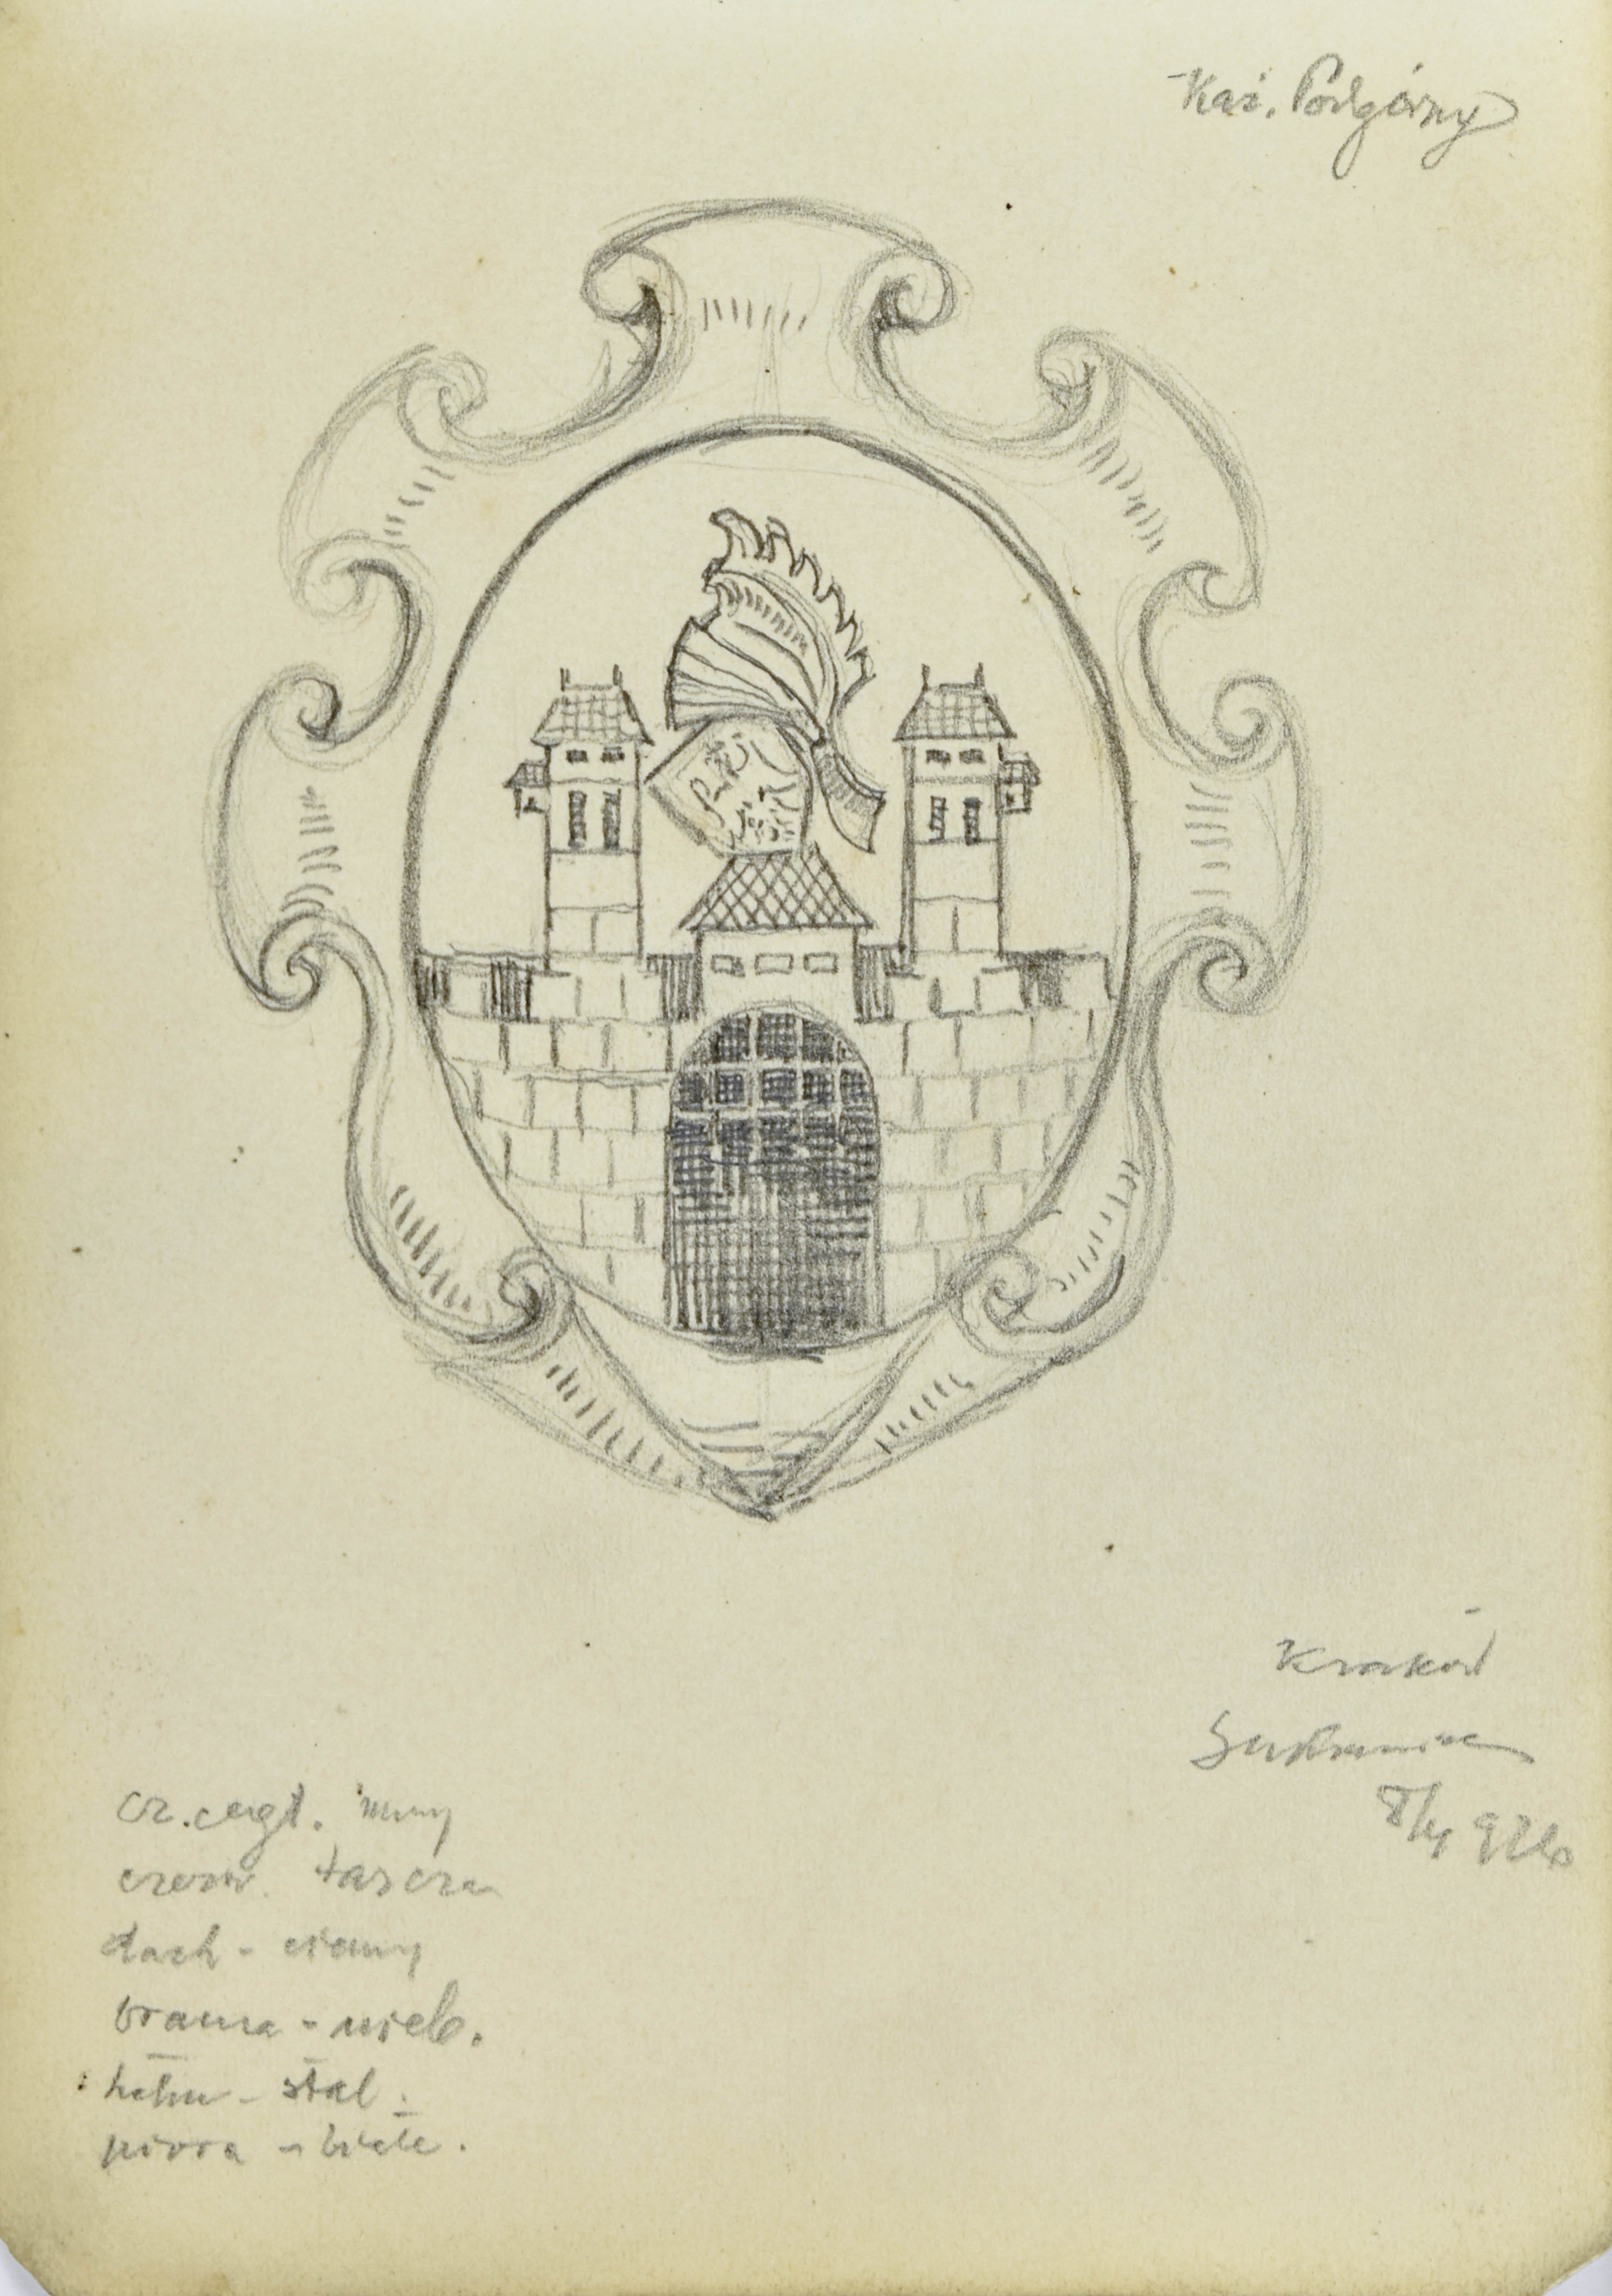 Kaź. Podgórny
Kraków
Sukiennice
8/4 926
cz. cegł. mury
czerw. tarcza
dach - ciemny
brama - nieb.
hełm - stal.
pióra - białe.